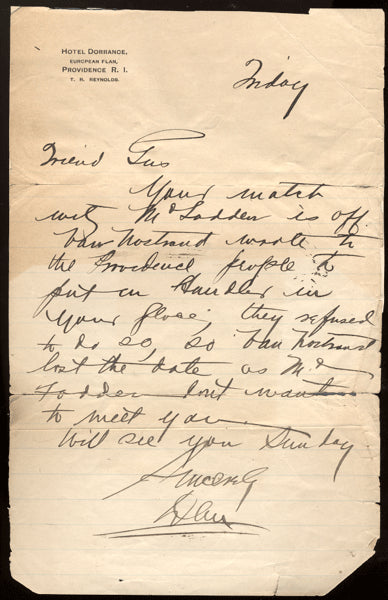 HOTEL DORRANCE,
EUROPEAN PLAN,
PROVIDENCE R. I.
T. R. REYNOLDS.
Friday
Friend Gus
Your match
with McFadden is off
Van Nostrand wrote to
the Providence people to
put on Handler in
your place; they refused
to do so, so Van Nostrand
lost the date as Mc
Fadden don't want
to meet you
Will see you Sunday
Sincerely